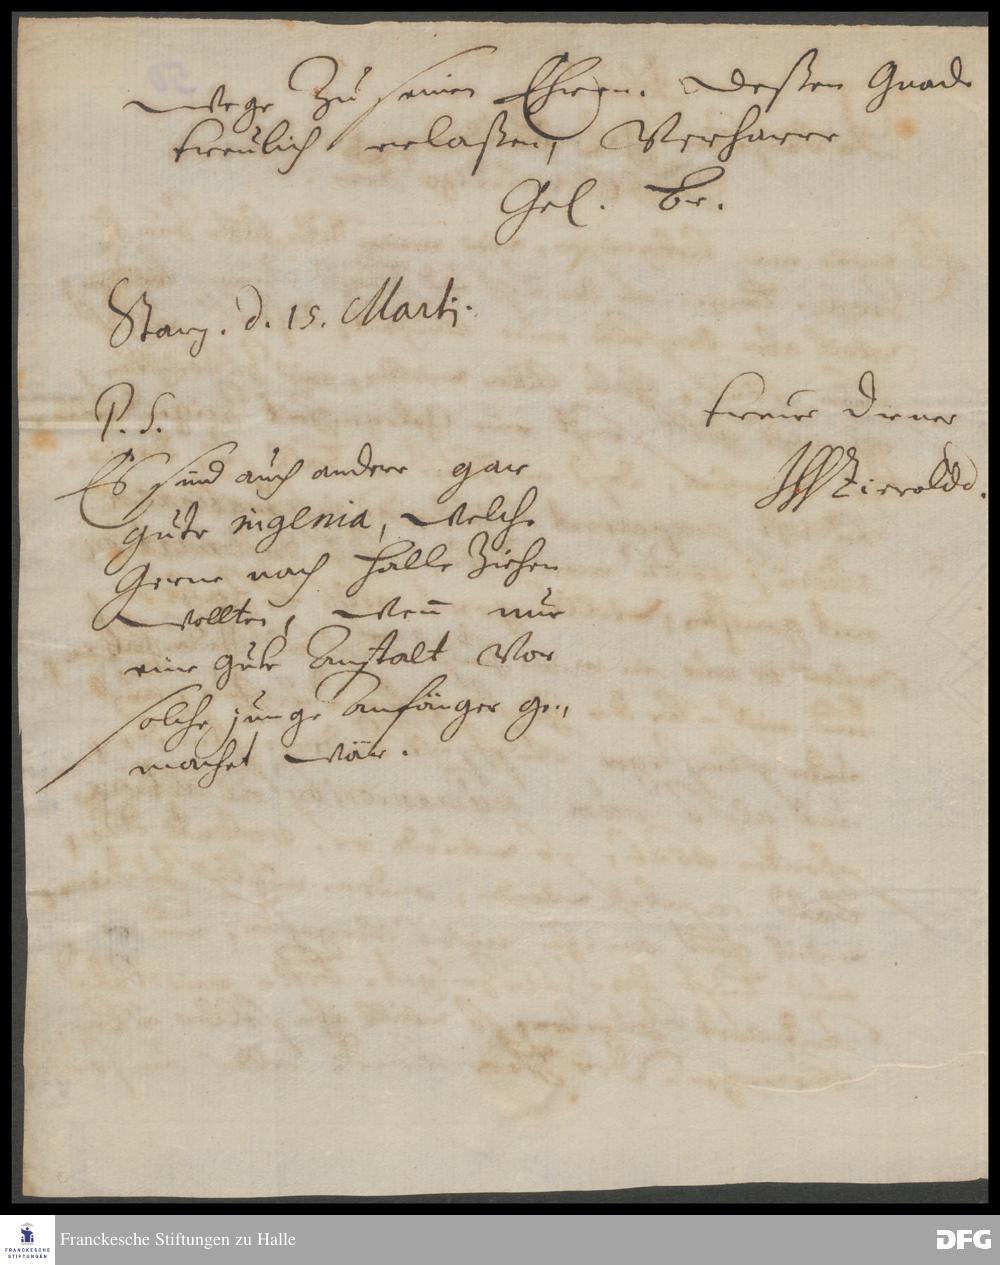 wege zu seinen Ehren. Deßen Gnade
treulich erlaßen, Verharre
Gel. Br.
Starg. d. 15. Martij.
P. S.
treuer Diener
JWZieroldd.
Es sind auch andere gar
gute ingenia, welche
gerne nach Halle ziehen
wollten, wenn nur
eine gute Anstalt vor
solche junge Anfänger ge„
machet wär.
FRANCKESCHE
STIFTUNGEN
Franckesche Stiftungen zu Halle
DFG